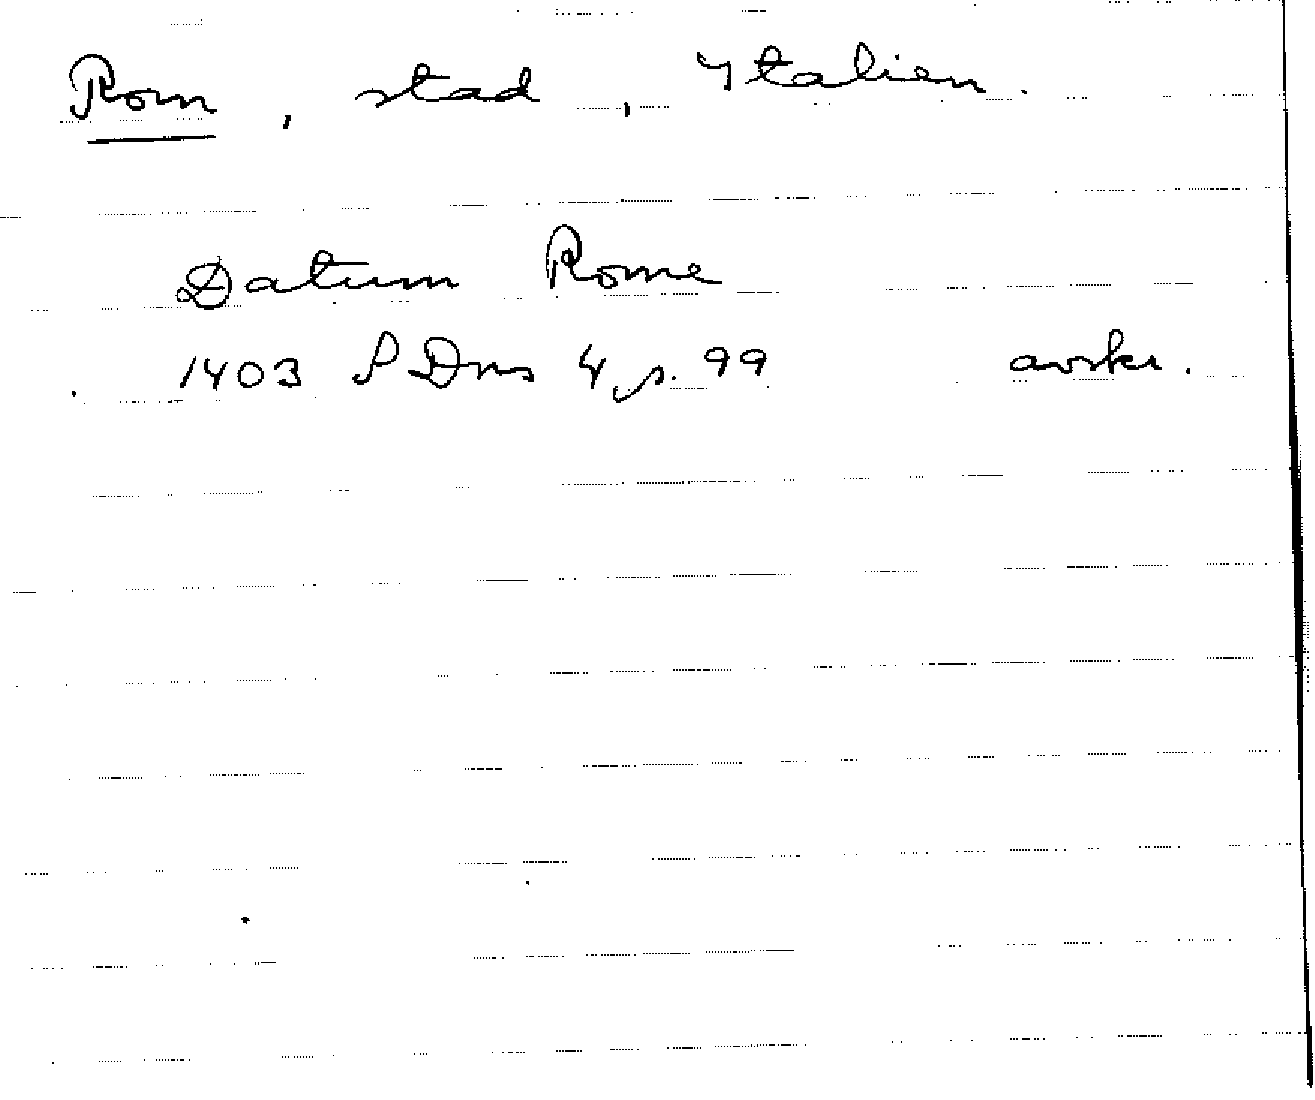 Rom, stad, Italien.
Datum Rome
1403 SDns 4, s. 99 avskr.